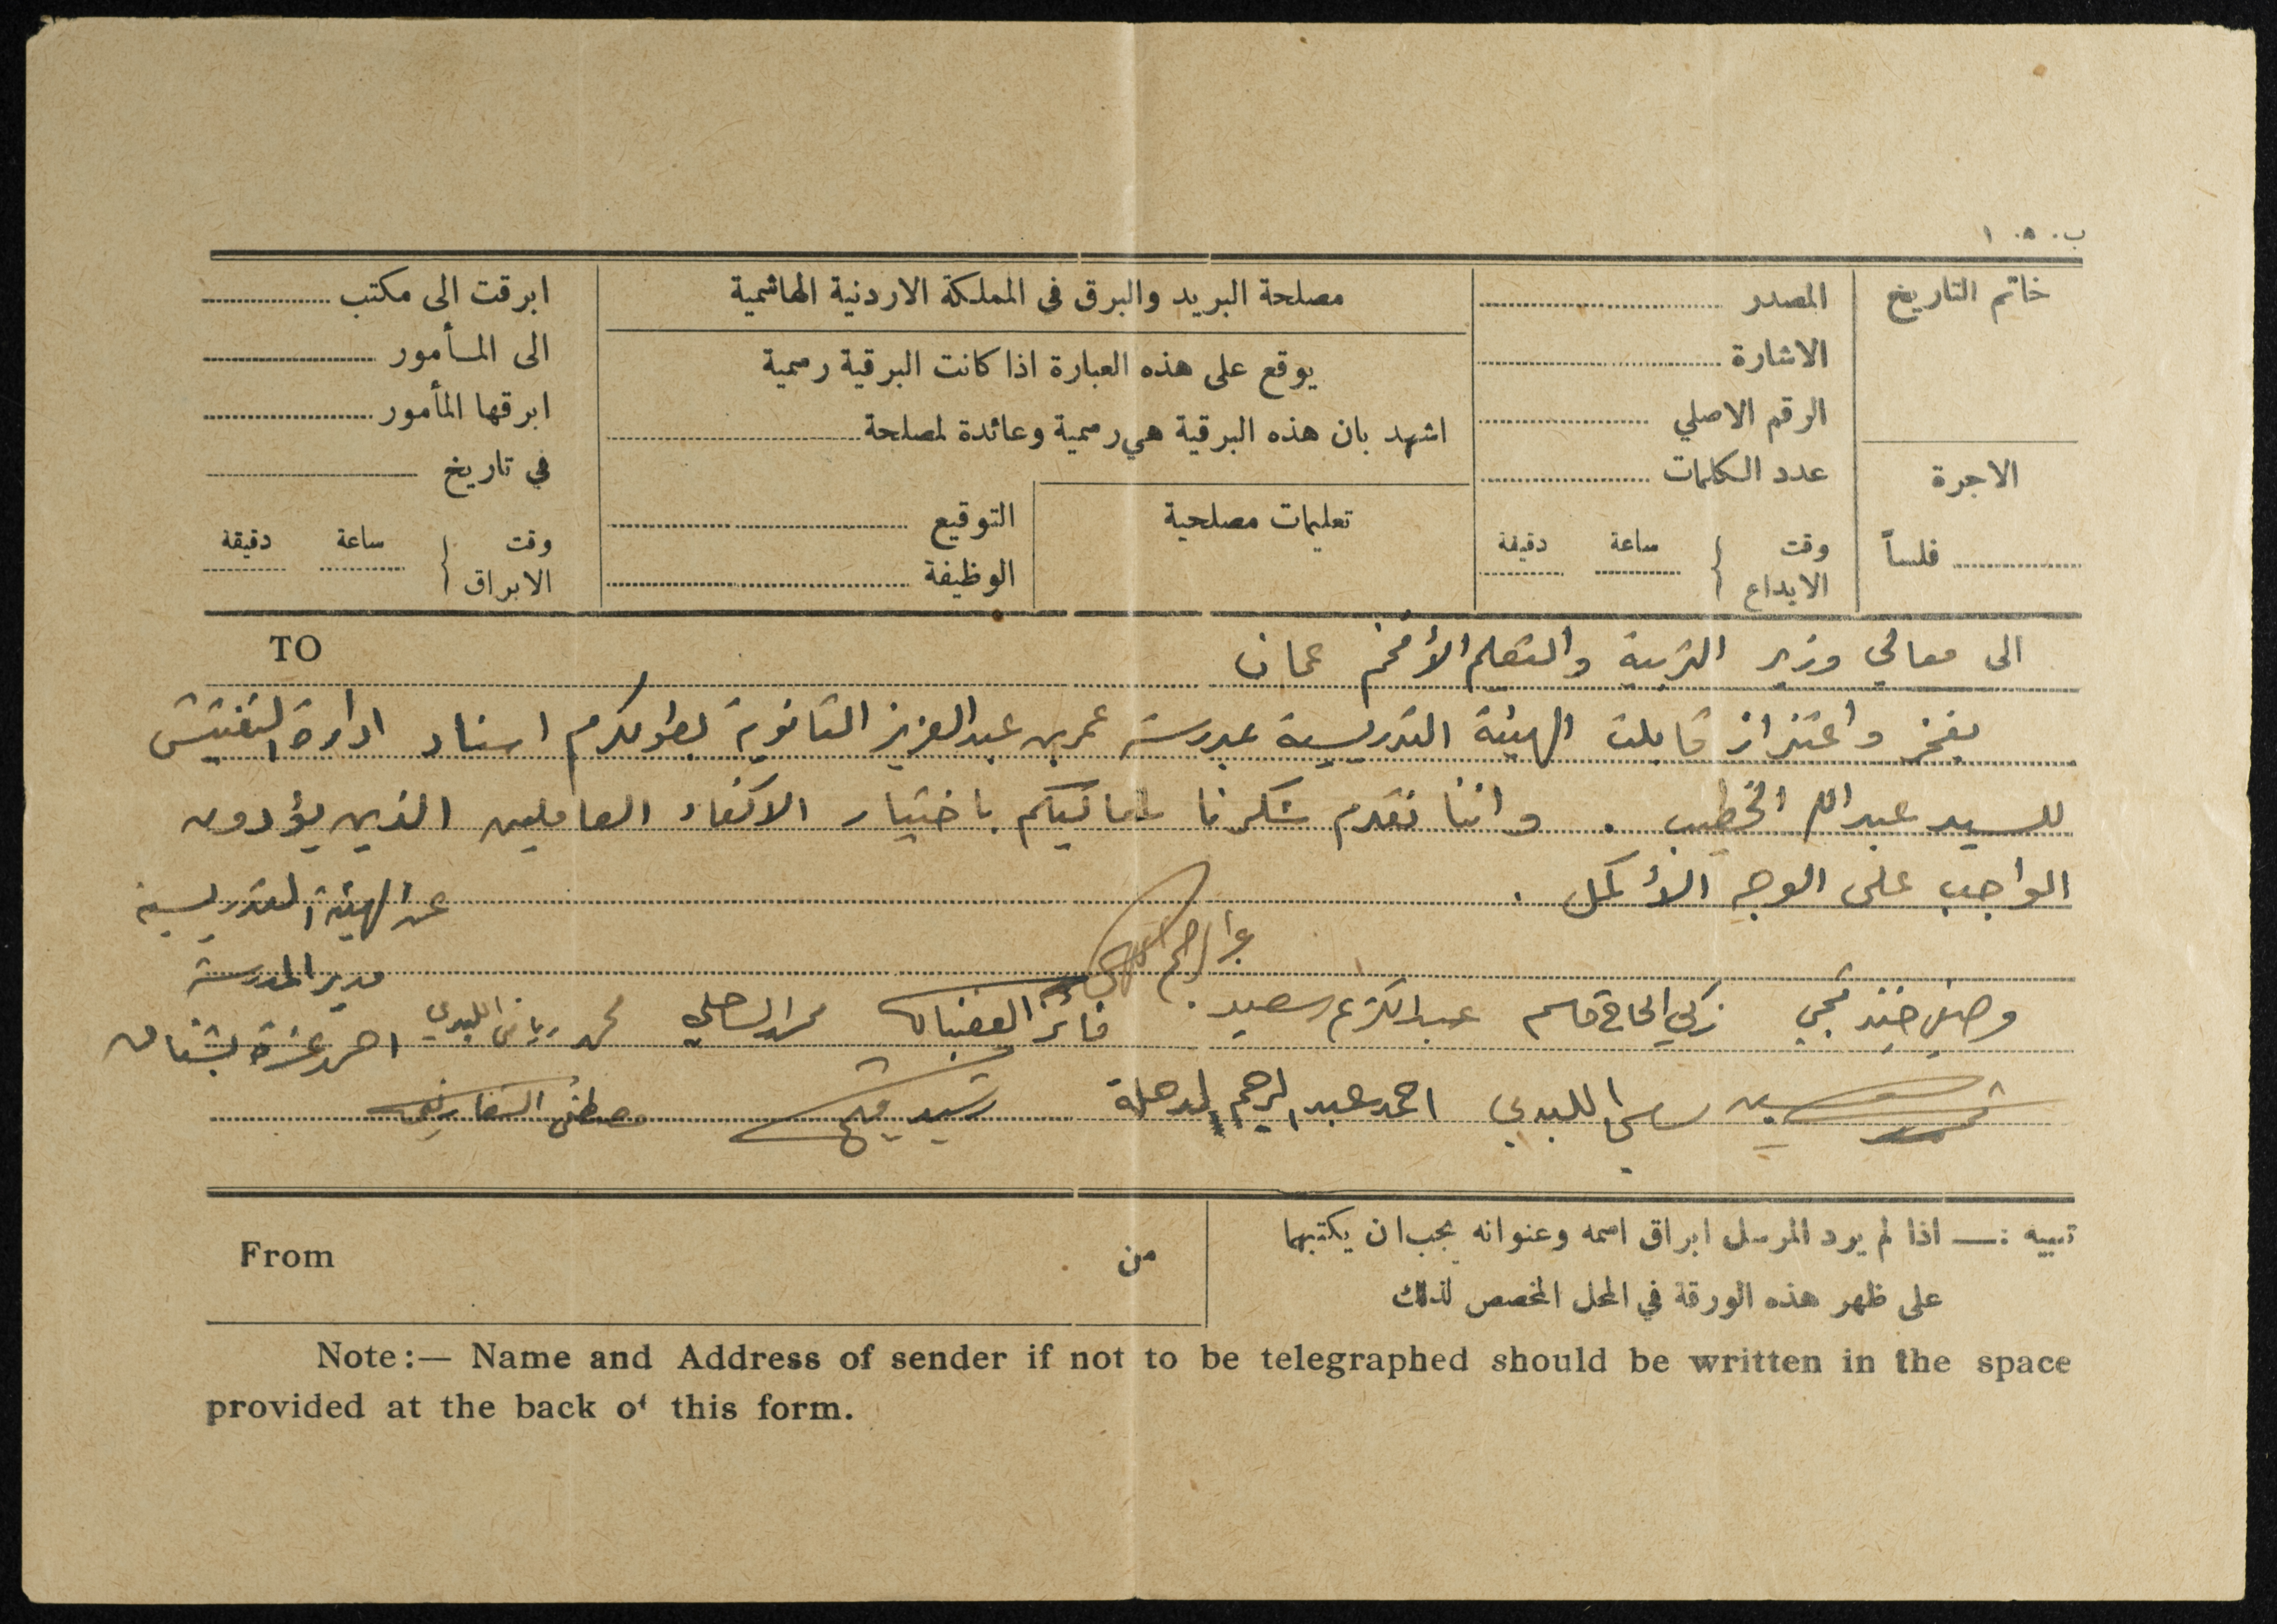 ب. ١٠٥
خاتم التاريخ
الاجرة
فلساً
المصدر
الاشارة
الرقم الاصلي
عدد الكلمات
وقت الايداع ساعة دقيقة
مصلحة البريد والبرق في المملكة الاردنية الهاشمية
يوقع على هذه العبارة اذا كانت البرقية رسمية
اشهد بان هذه البرقية هي رسمية وعائدة لمصلحة
تعليمات مصلحية
التوقيع
الوظيفة
ابرقت الى مكتب
الى المأمور
ابرقها المأمور
في تاريخ
وقت الابراق ساعة دقيقة
الى معالي وزير التربية والتعليم الأفخم عمان TO
بفخر واعتزاز قابلت الهيئة التدريسية بمدرسة عمر بن عبد العزيز الثانوية بطولكرم اسناد ادارة التفتيش
للسيد عبد الله الخطيب . واننا نقدم شكرنا لمعاليكم باختيار الاكفاء العاملين الذين يؤدون
الواجب على الوجه الأكمل .
عن الهيئة التدريسية
مدير المدرسة
وصفي زكي الحاج قاسم عبد الكريم سعيد فائز محمد الساحلي محمد رياض اللبدي احمد عزة
سامي اللبدي احمد عبد الرحيم رشيد مصطفى
تنبيه :— اذا لم يرد المرسل ابراق اسمه وعنوانه يجب ان يكتبها
على ظهر هذه الورقة في المحل المخصص لذلك
من From
Note:— Name and Address of sender if not to be telegraphed should be written in the space
provided at the back of this form.